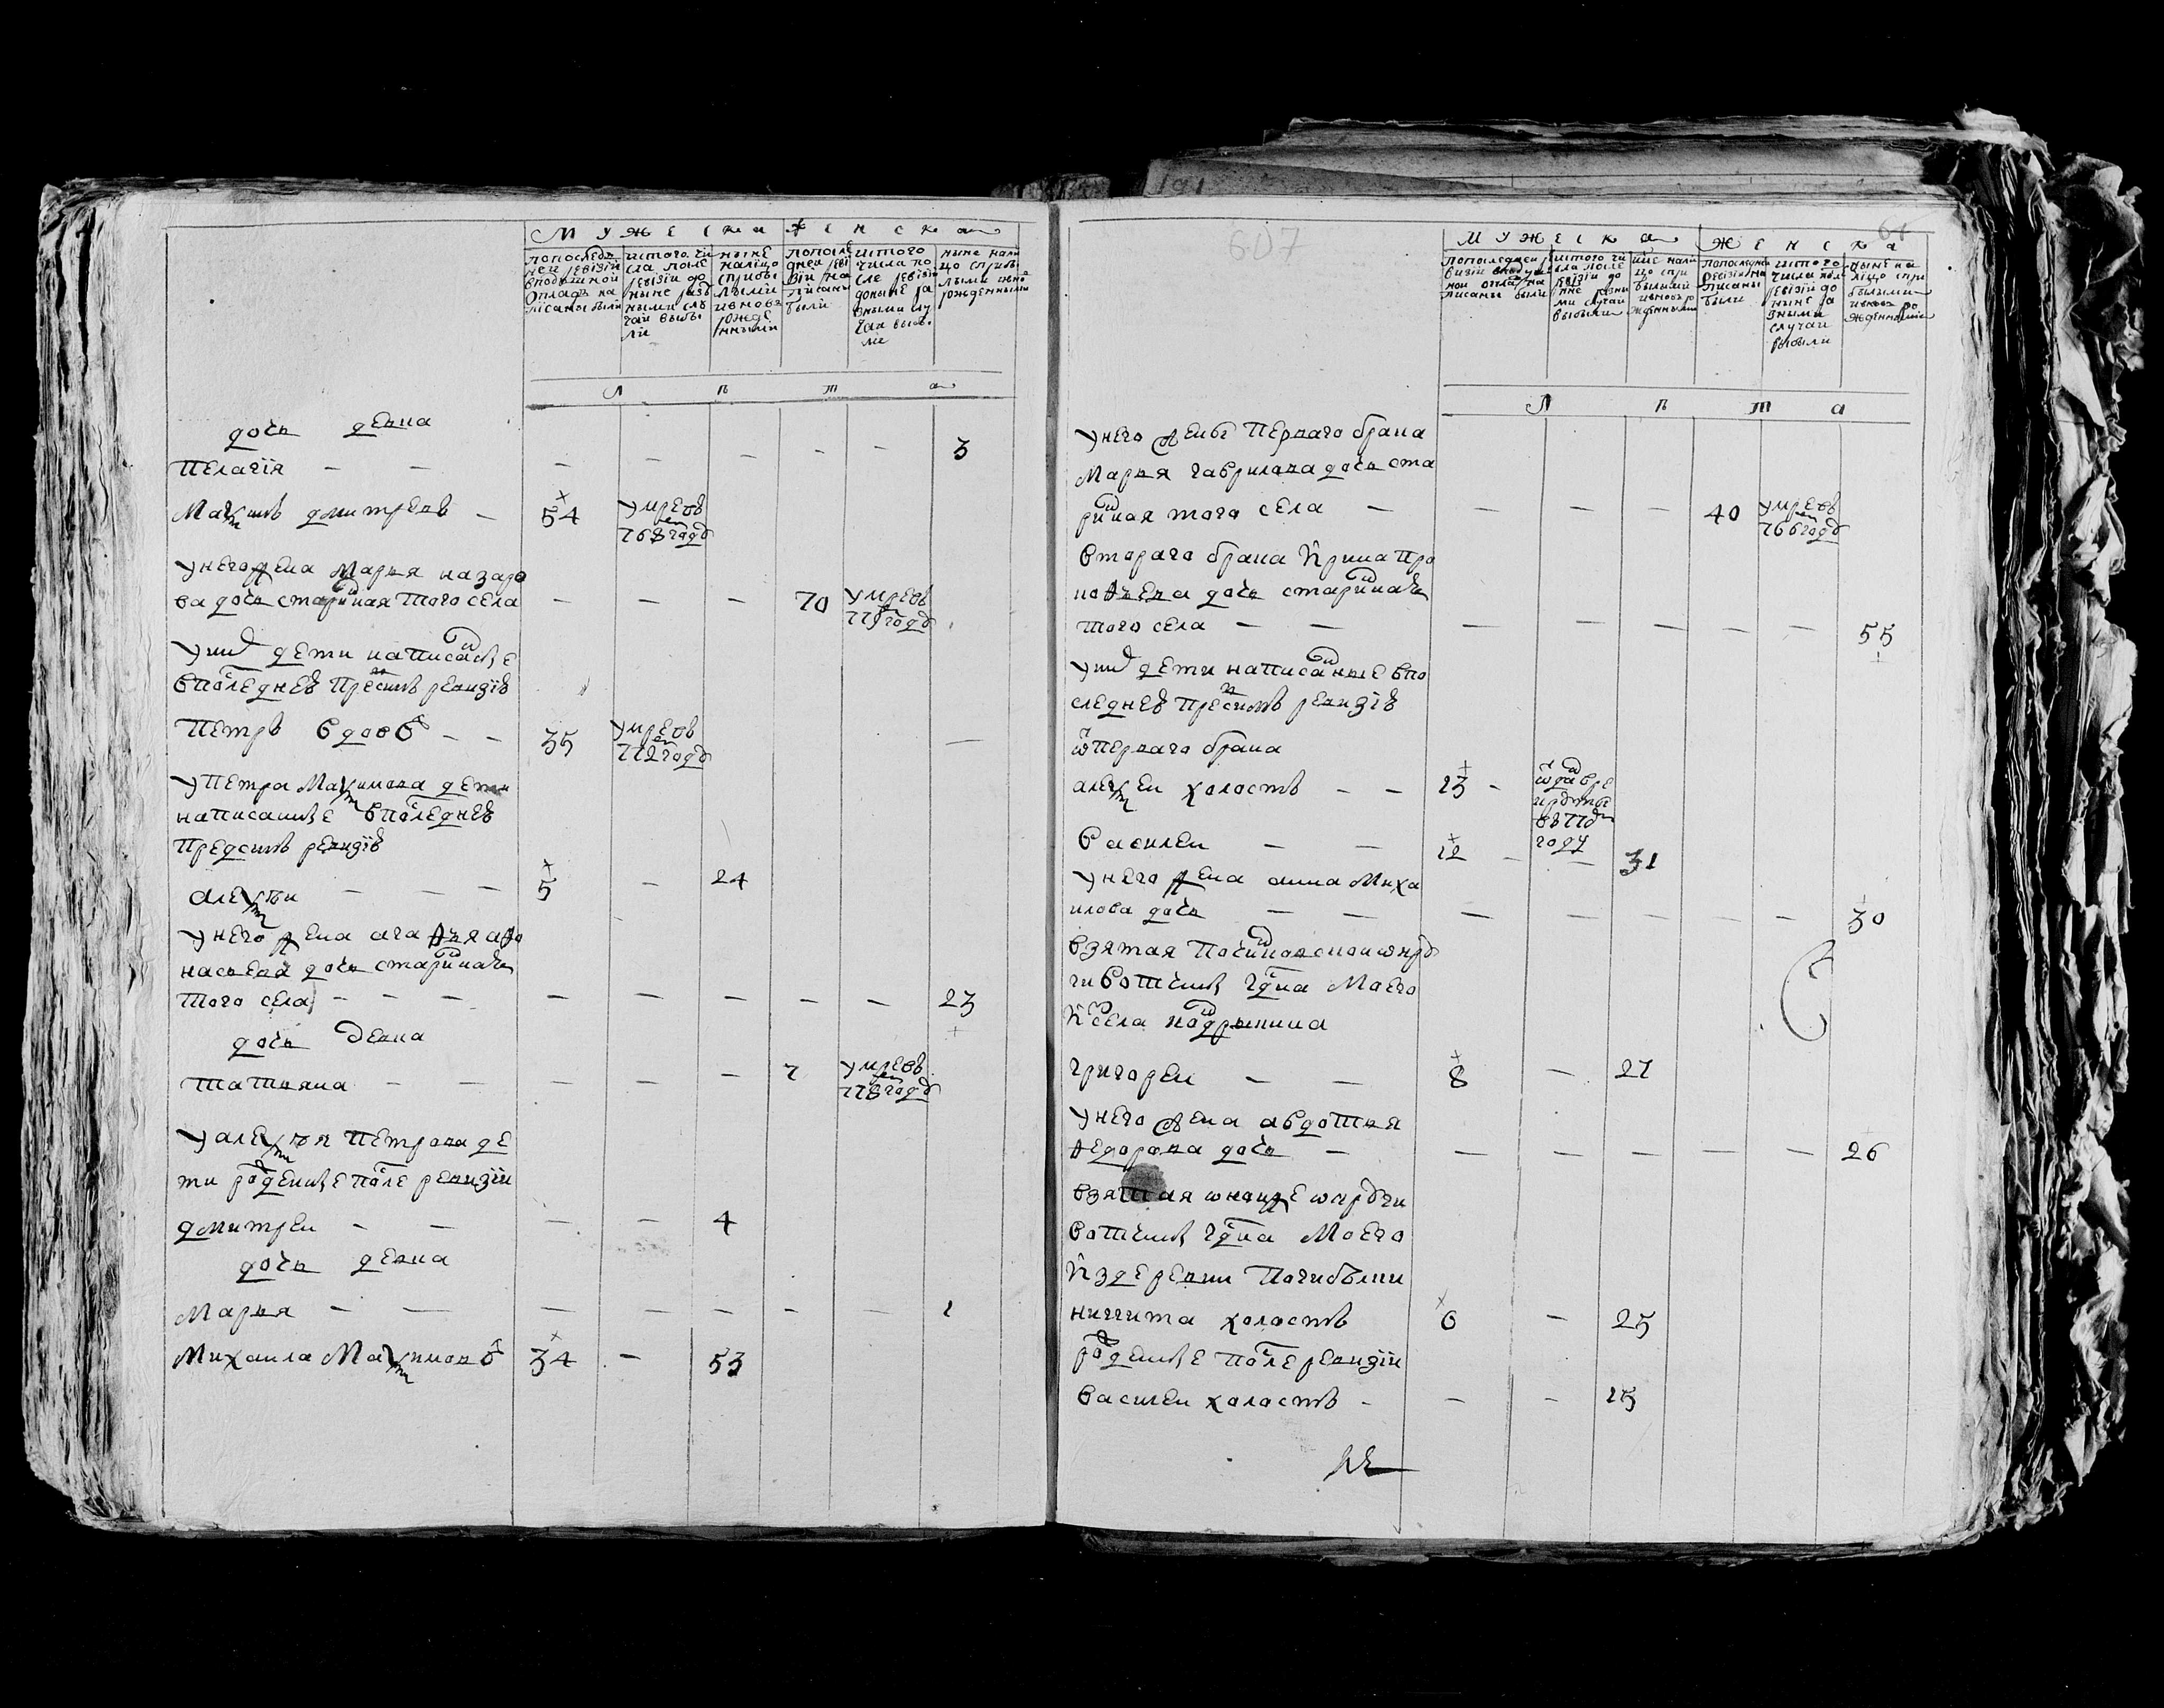 Мужеска Женска
по последней ревизии в подушной оклад написаны были
ис того числа после ревизии до ныне разными случаи выбыли
ныне налицо с прибылыми и вновь рожденными
по последней ревизии написаны были
ис того числа после ревизии до ныне разными случаи выбыли
ныне налицо с прибылыми и вновь рожденными
Л ѣ т а
дочь девка
Пелагiя — — — — — — — 3
Маѯимъ дмитреевъ — 54 умре въ
768 годѣ
У него жена Марья назаро
ва дочь старинная того села — — — 70 умре въ
годѣ
У них дети написаные
в последней пред симъ ревизiи
Петръ вдовъ — — 35 умре въ
772 годѣ
У Петра Маѯимова дети
написаные в последней
пред симъ ревизiи
алеѯѣи — — — 5 — 24
У него жена агаѳья аѳо
насьева дочь стариная
того села — — — — — — — — 23
дочь девка
татьяна — — — — — 7 умре въ
778 годѣ
У алеѯѣя Петрова де
ти рожденые после ревизiи
дмитреи — — — — 4
дочь девка
Марья — — — — — — — 1
Михаила Маѯимовъ 34 — 53
607
Мужеска Женска
по последней ревизии в подушной оклад написаны были
ис того числа после ревизии до ныне разными случаи выбыли
ныне налицо с прибылыми и вновь рожденными
по последней ревизии написаны были
ис того числа после ревизии до ныне разными случаи выбыли
ныне налицо с прибылыми и вновь рожденными
Л ѣ т а
У него жены перваго брака
Марья гаврилова дочь ста
риная того села — — — — 40 умре въ
766 годѣ
втораго брака Ирина про
коѳьева дочь стариная
того села — — — — — — — 55
У них дети написаные в по
следней пред симъ ревизiи
ѿ перваго брака
алеѯеи холостъ — — 13 — ѿдан в ре
круты
въ
году
Василеи — — 12 — — 31
У него жена анна Миха
илова дочь — — — — — — — 30
взятая
вотчины гдна Моего
ис села
григореи — — 8 — 27
У него жена авдотья
ѳедорова дочь — — — — — — 26
взятая
вотчины гдна Моего
из деревни
никита холостъ 6 — 25
рожденые после ревизiи
василеи холостъ — — — 15